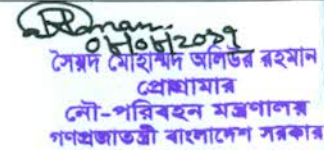 ০৮/০৮/২০১৭
সৈয়দ মোহাম্মদ অলিউর রহমান
প্রোগ্রামার
নৌ-পরিবহন মন্ত্রণালয়
গণপ্রজাতন্ত্রী বাংলাদেশ সরকার